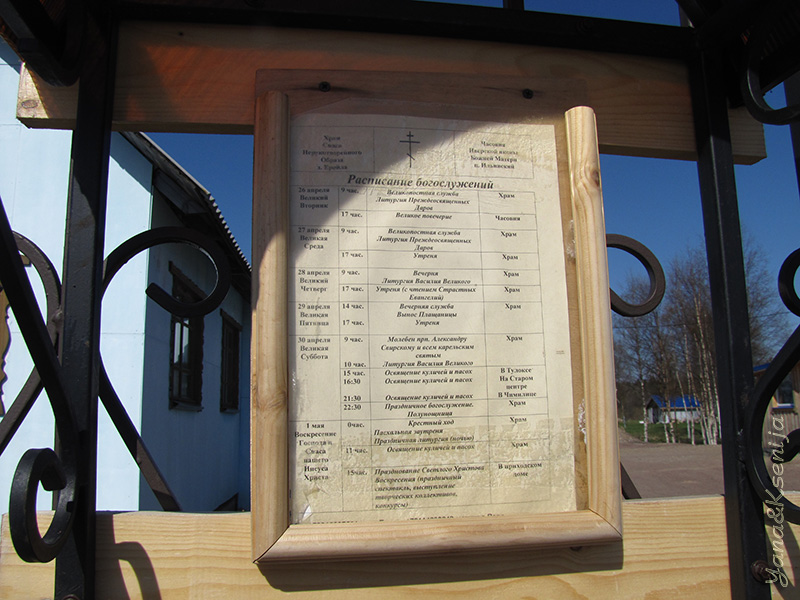 Храм
Спаса
Нерукотворного
Образа
Часовня
Иверской иконы
Божией Матери
п. Ильинский
Расписание богослужений
26 апреля
Великий
Вторник
9 час.
Великопостная служба
Литургия Преждеосвященных
Даров
Храм
17 час.
Великое повечерие
Часовня
27 апреля
Великая
Среда
9 час.
Великопостная служба
Литургия Преждеосвященных
Даров
Храм
17 час.
Утреня
Храм
28 апреля
Великий
Четверг
9 час.
Вечерня
Литургия Василия Великого
Храм
17 час.
Утреня (с чтением Страстных
Евангелий)
Храм
29 апреля
Великая
Пятница
14 час.
Вечерняя служба
Вынос Плащаницы
Храм
17 час.
Утреня
30 апреля
Великая
Суббота
9 час.
Молебен прп. Александру
Свирскому и всем карельским
святым
Храм
10 час.
Литургия Василия Великого
15 час.
Освящение куличей и пасох
В Тулоксе
16:30
Освящение куличей и пасох
На Старом
центре
21:30
Освящение куличей и пасох
В Чимилице
22:30
Праздничное богослужение.
Полунощница
Храм
1 мая
Воскресение
Господа и
Спаса
нашего
Иисуса
Христа
0час.
Крестный ход
Пасхальная заутреня
Праздничная литургия (ночью)
Храм
11 час.
Освящение куличей и пасох
Храм
15час.
Празднование Светлого Христова
Воскресения (праздничный
спектакль, выступление
творческих коллективов,
конкурсы)
В приходском
доме
Yana&Ksenija